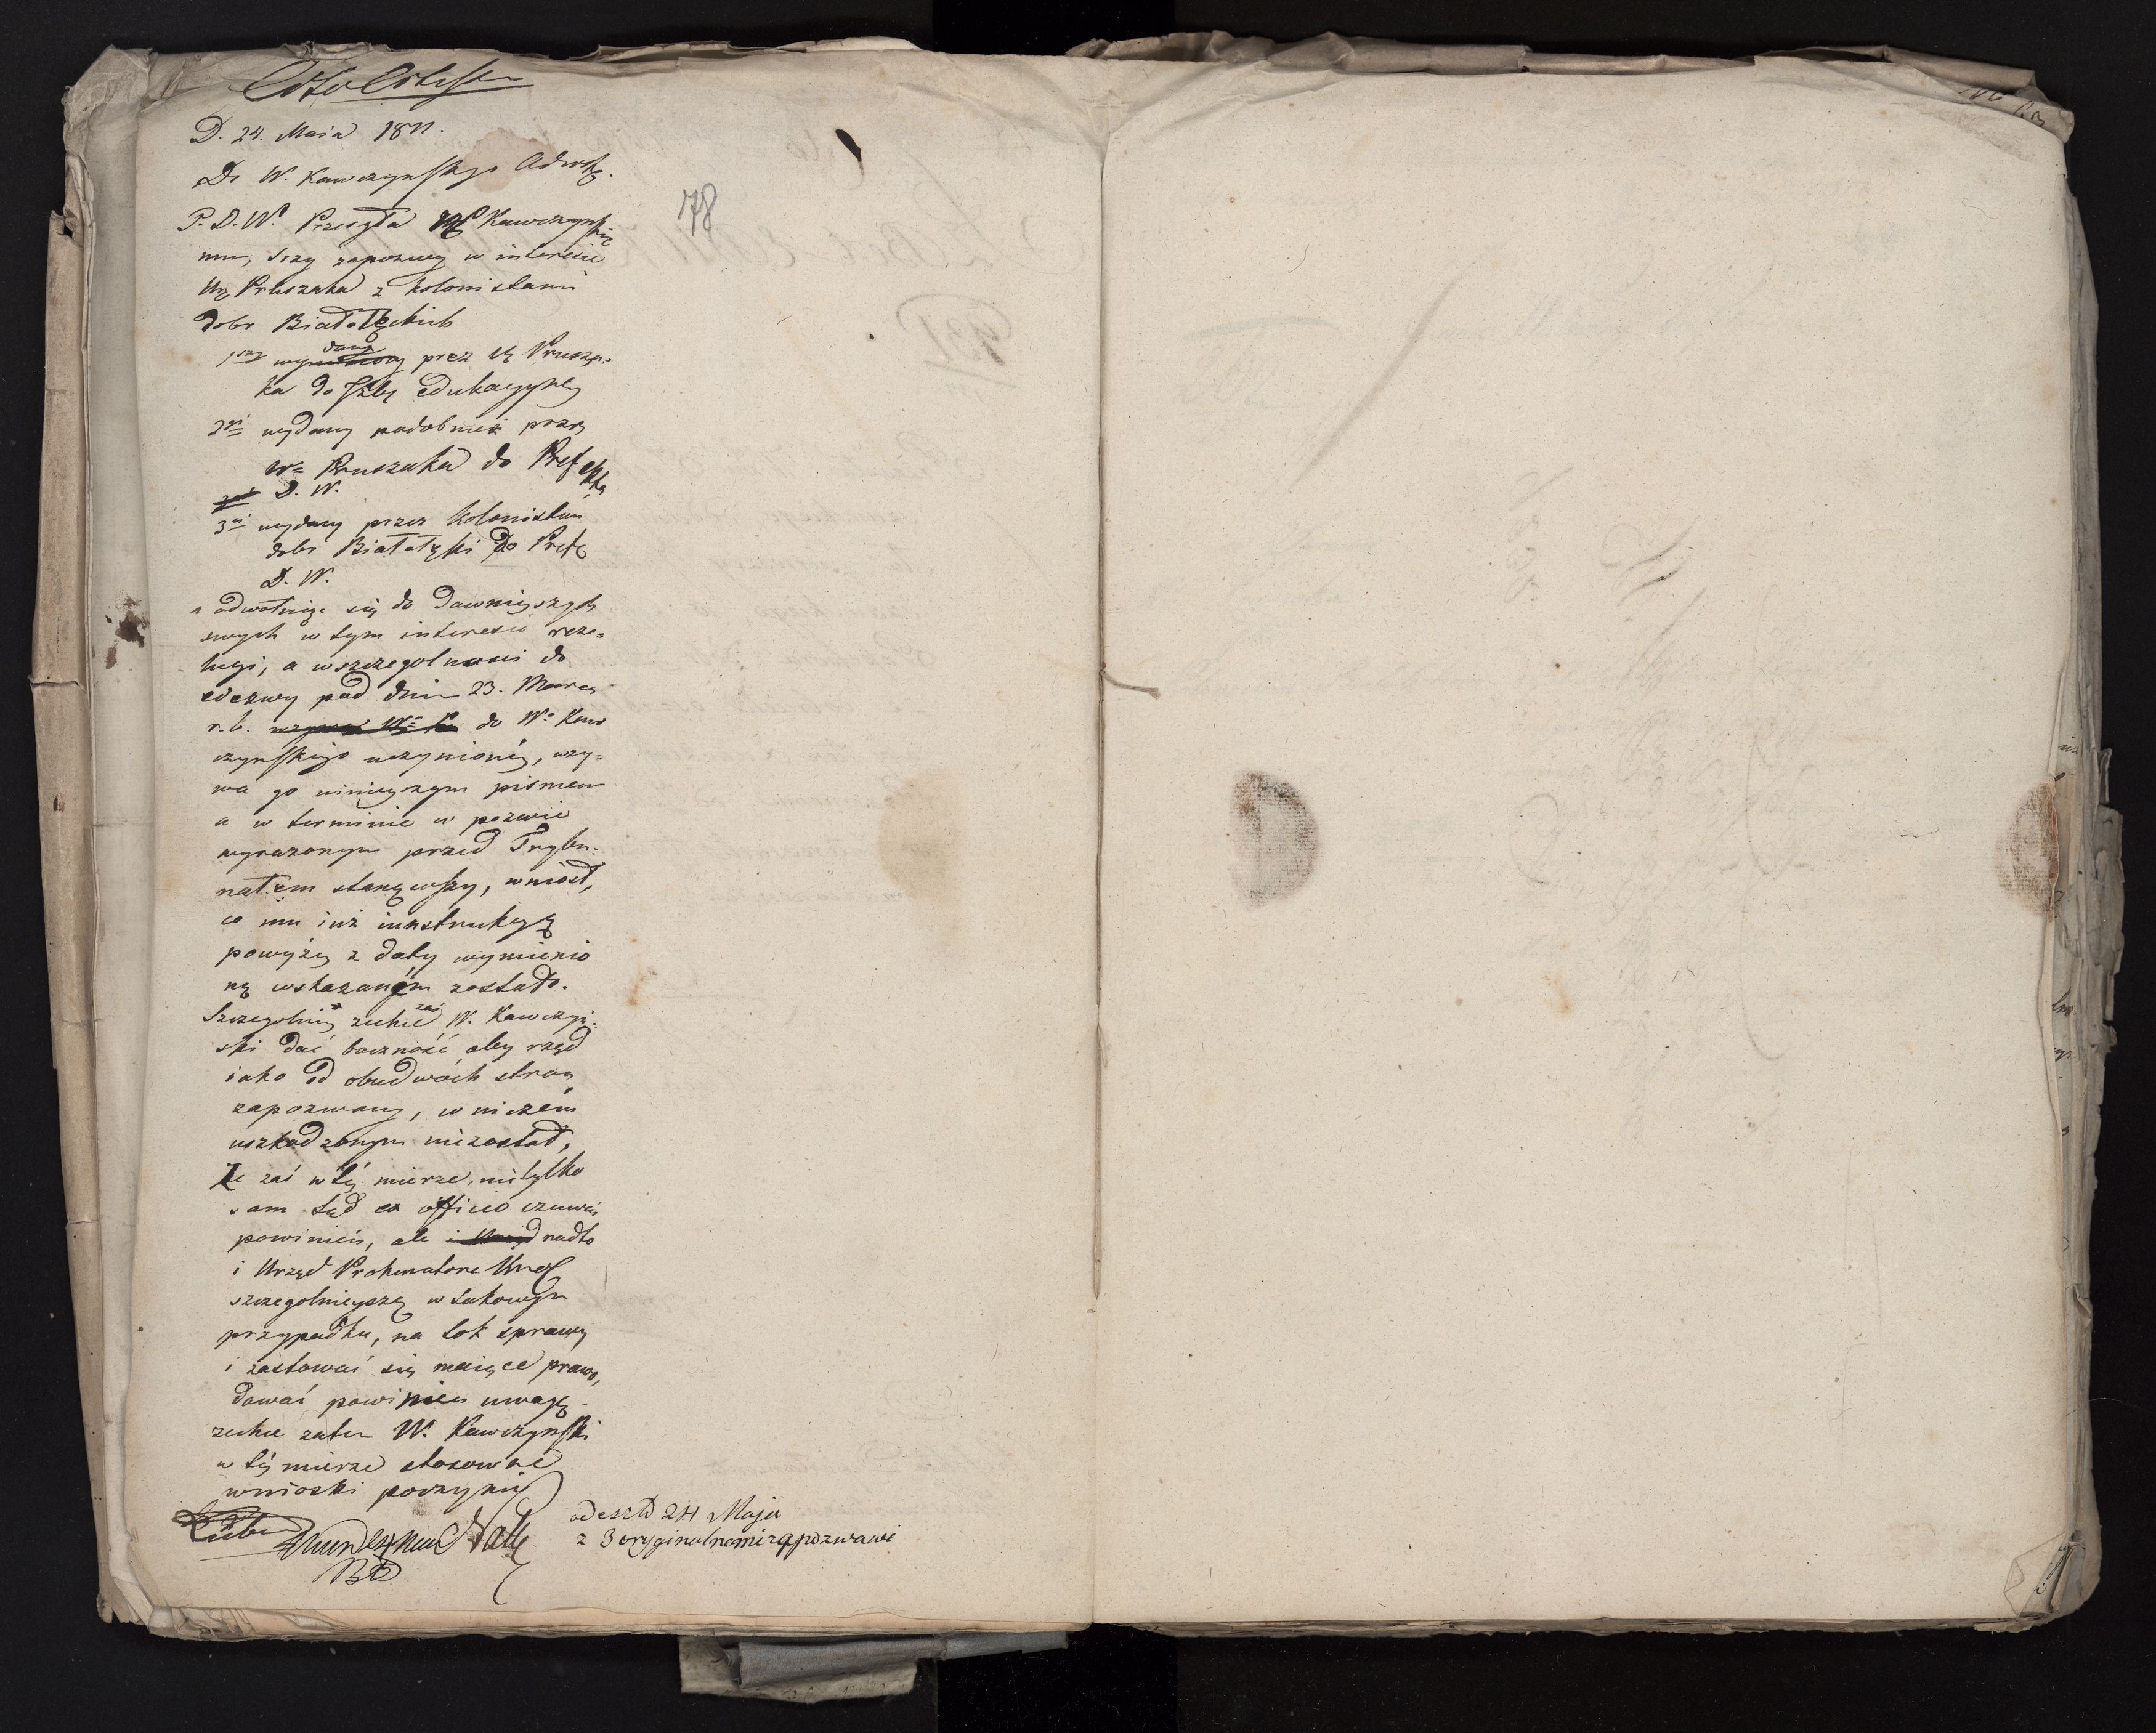 Cito Citissi
D. 24. Maia 1811.
Do W. Kawczynskego Adwok.
78
P. D. W. Przesyła WP Kawczynskie
mu, trzy zapozwy w interesie
Ur. Pruszaka z kolonistami
dobr Białołęckich
1szy wydany przez Ur Prusza-
ka do Izby edukacyyney
2gi wydany podobnież przez
Wo Pruszaka do Prefekta
D. W.
3ci wydany przez kolonistów
dobr Białołęki do Prefe
D. W.
a odwołuiąc się do dawnieyszych
swych w tym interesie rezo-
lucyi, a wszczegolnosci do
odezwy pod dniem 23. Marca
r. b. do Wo Kaw
czynskiego uczynioney, wzy-
wa go ninieyszym pismem
a w terminie w pozwie
wyrazonym przed Trybu-
nałem stanąwszy, wniosł,
co mu iuż instrukcyą
powyżey z daty wymienio
ną wskazanem zostało.
Szczegolniey zechce zaś W. Kawczyń-
ski dać baczność aby rząd
iako od obudwóch stron
zapozwany, w niczém
uszkodzonym niezostał,
Że zaś w téy mierze, nietylko
sam Sąd ex officio czuwać
powinień, ale nadto
i Urząd Prokuratora
szczegolnieyszą w takowym
przypadku, na tok sprawy
i zastować się maiące prawo,
dawać powinien uwagę
zechce zatem W. Kawczynski
w téy mierze stosowne
wnioski poczynić
odeszło 24 Maja
z 3 oryginalnemi zapozwami